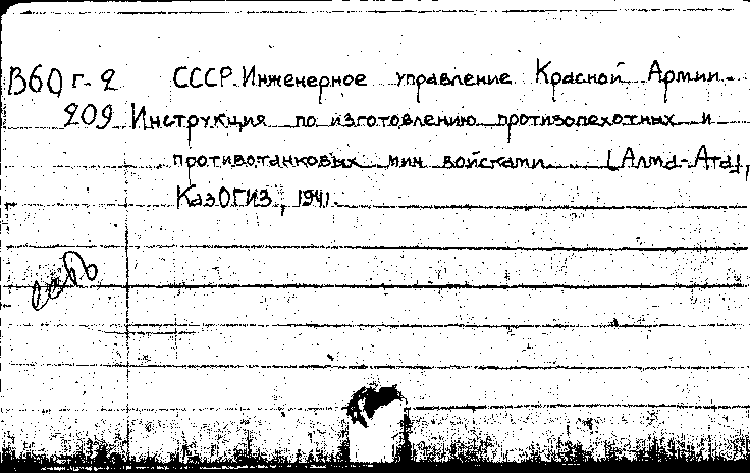 В60 г-2 СССР. Инженерное управление Красной Армии.
209 Инструкция по изготовлению противопехотных и
противотанковых мин войсками. [Алма-Ата],
КазОГИЗ, 1941.